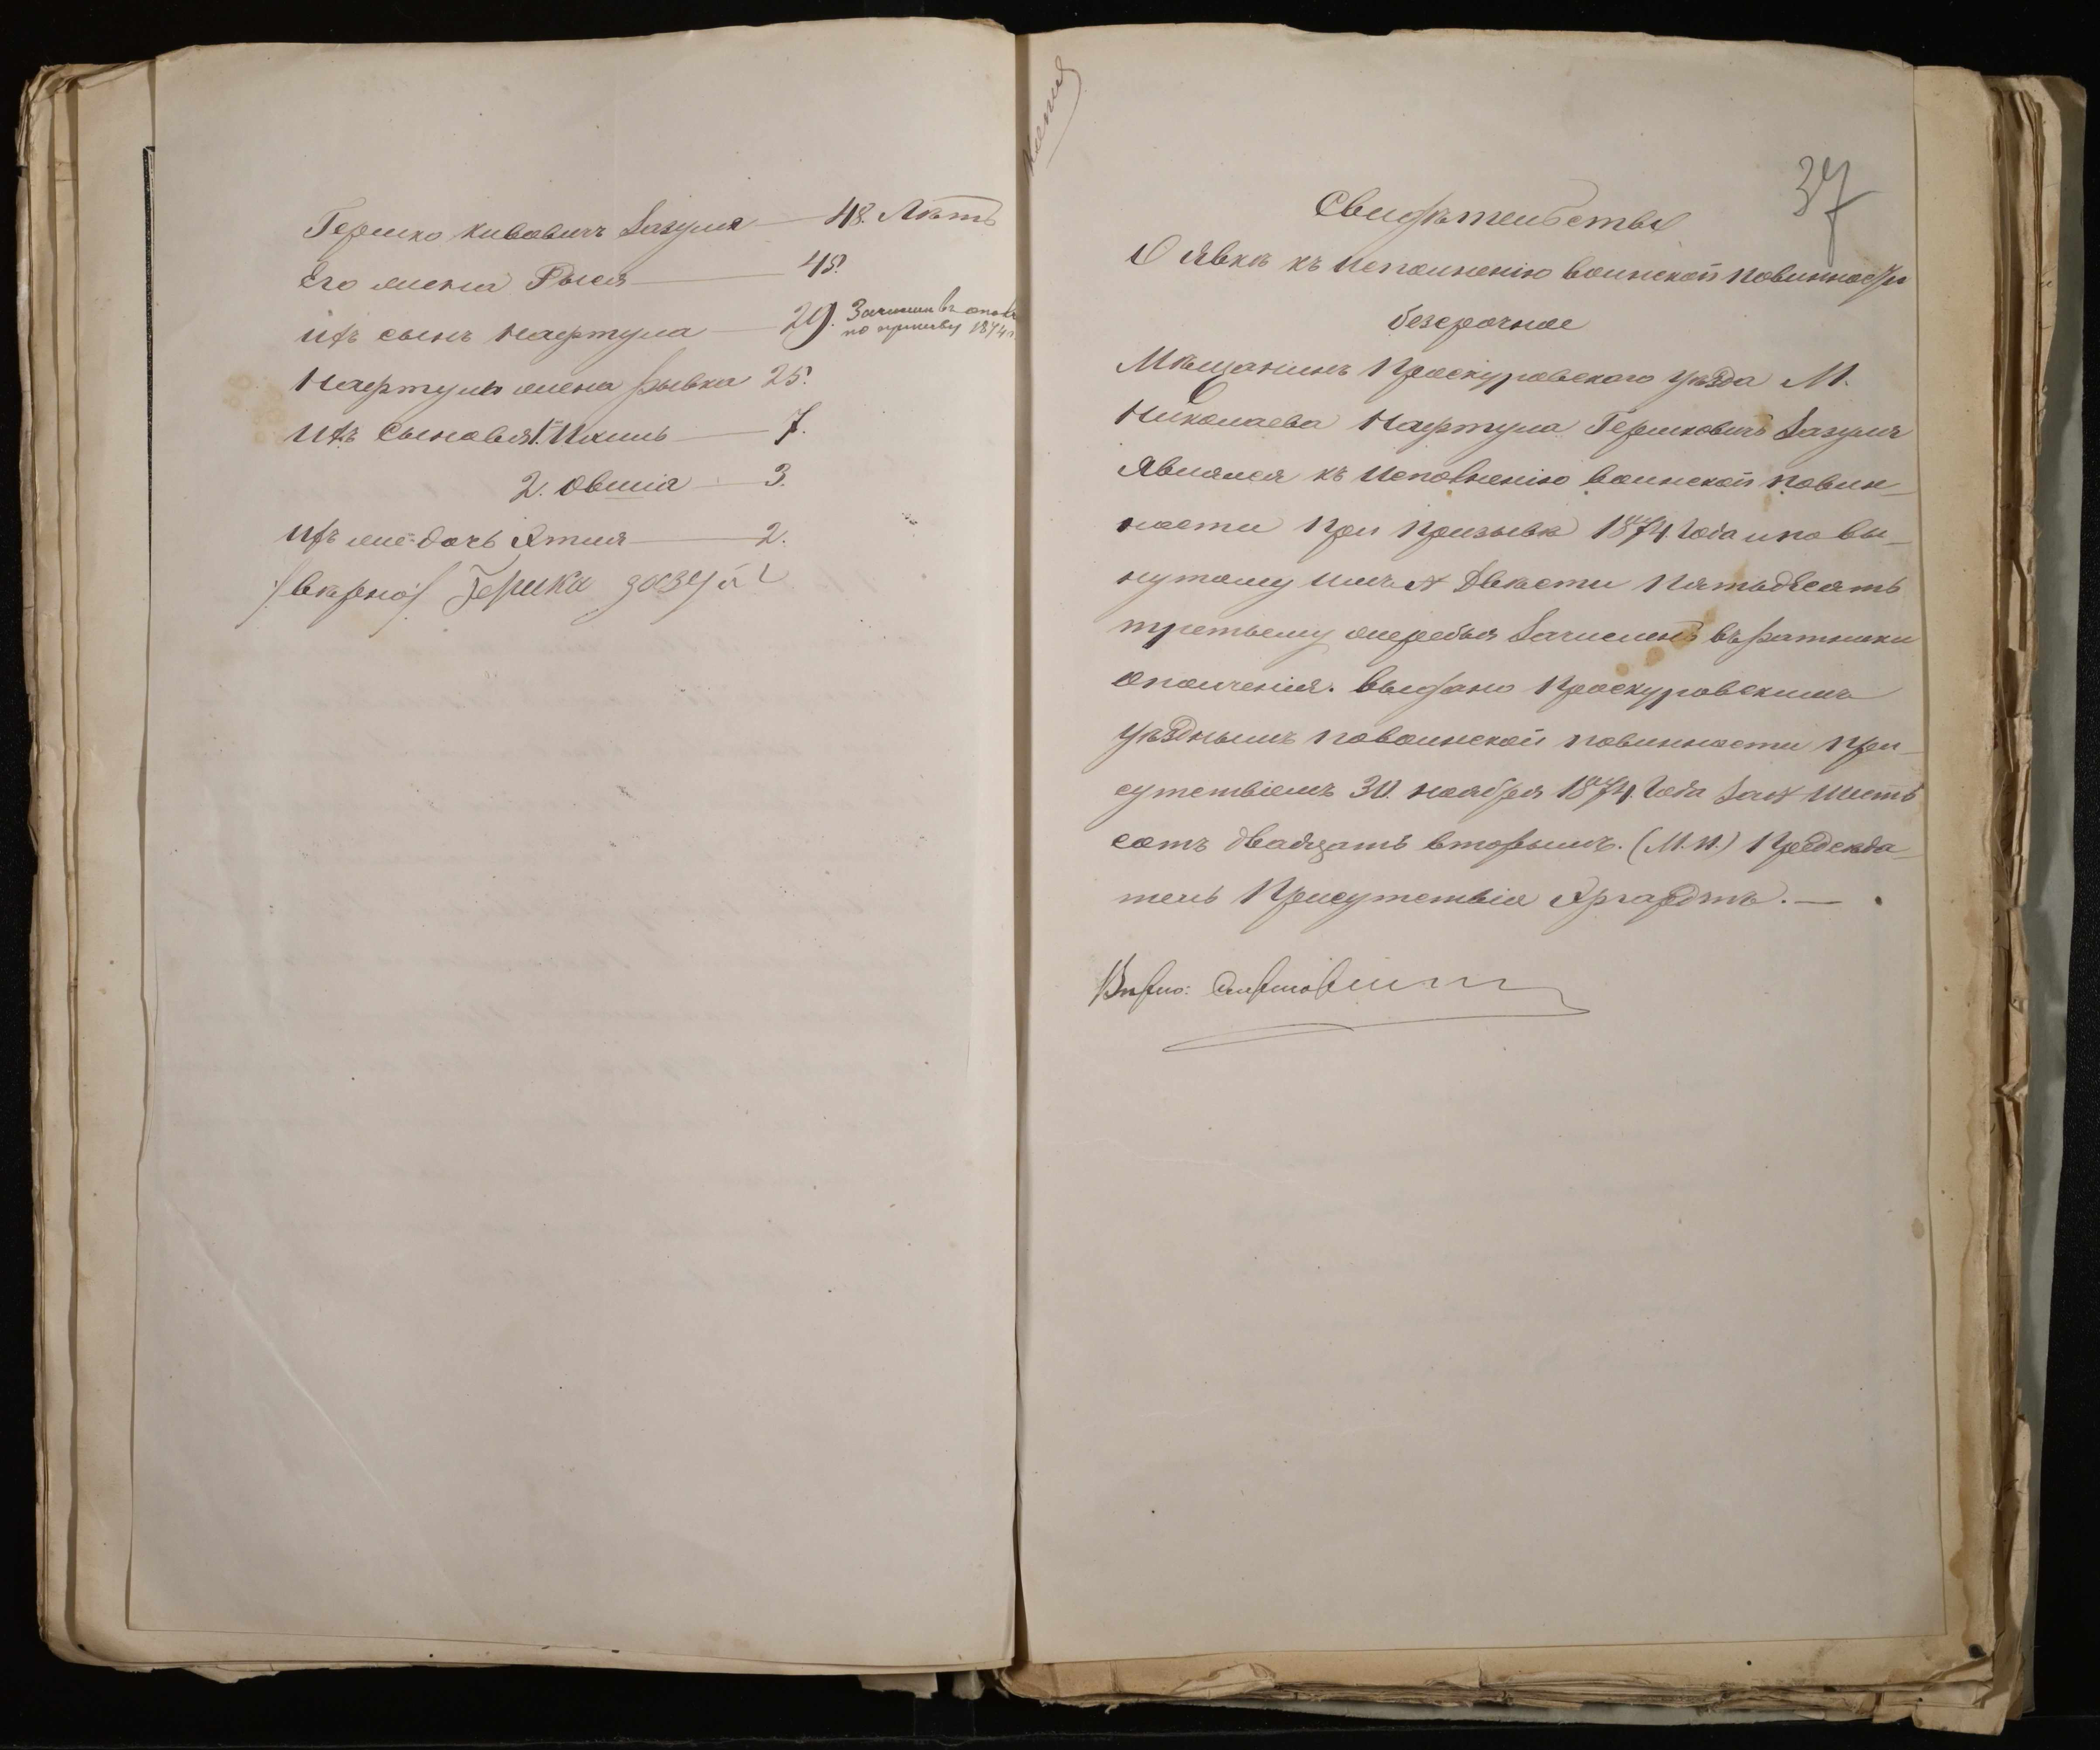 Гершко Кивовичъ Зазуля — 48. Лѣтъ
Его жена Рыся — 45.
ихъ сынъ Нафтула — 29. Зачисленъ въ ополч.
по призыву 1874 г.
Нафтулы жена Рывка 25.
ихъ сыновья 1. — 7.
2. Овшia — 3.
ихъ же дочь — 2.
/вѣрно/ Гершко Зазуля
Копія
37
Свидѣтельство
О явкѣ къ исполненію воинской повинности
безсрочное
Мѣщанинъ Проскуровскаго уѣзда М.
Николаева Нафтула Гершковичъ Зазуля
являлся къ исполненію воинской повин-
ности при призывѣ 1874 года и по вы-
нутому имъ № Двѣсти пятьдесятъ
третьему жеребья зачисленъ въ ратники
ополченія. Выдано Проскуровскимъ
уѣзднымъ по воинской повинности при-
сутствіемъ 30. ноября 1874. года за № шесть
сотъ двадцать вторымъ. (М. П.) Предсѣда-
тель Присутствія —
Вѣрно: